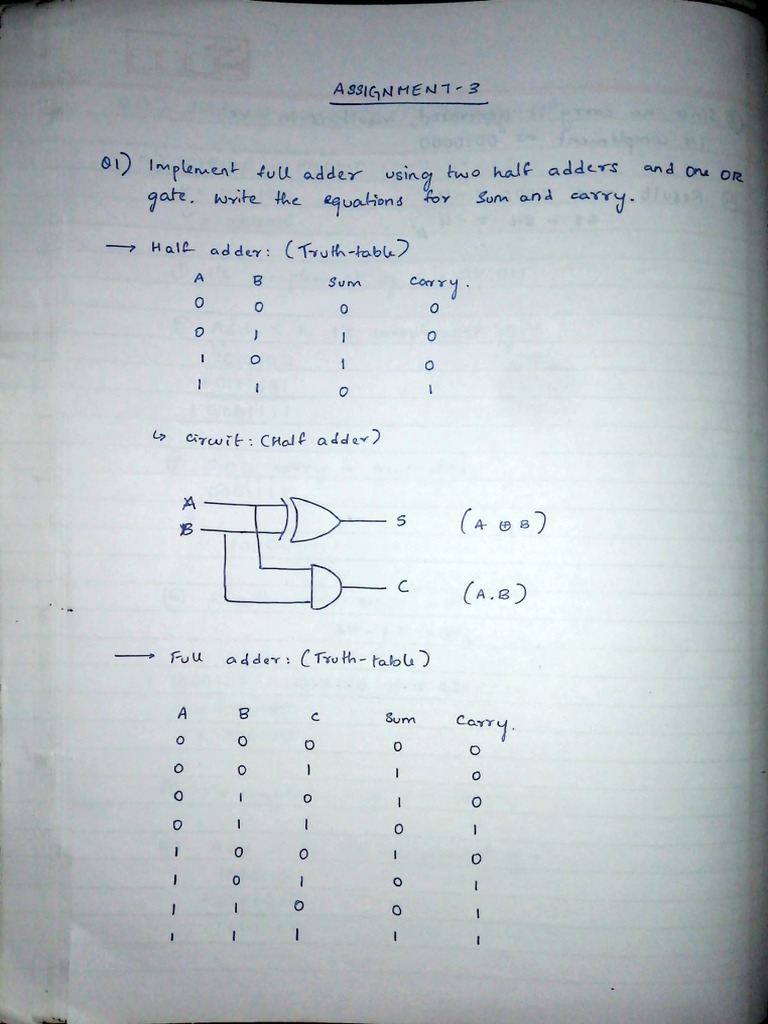 ASSIGNMENT-3
Q1) Implement full adder using two half adders and one OR
gate. Write the equations for Sum and carry.
→ Half adder: (Truth-table)
A B Sum Carry.
0 0 0 0
0 1 1 0
1 0 1 0
1 1 0 1
↳ circuit: (Half adder)
A S (A ⊕ B)
B
C (A.B)
→ Full adder: (Truth-table)
A B C Sum Carry.
0 0 0 0 0
0 0 1 1 0
0 1 0 1 0
0 1 1 0 1
1 0 0 1 0
1 0 1 0 1
1 1 0 0 1
1 1 1 1 1